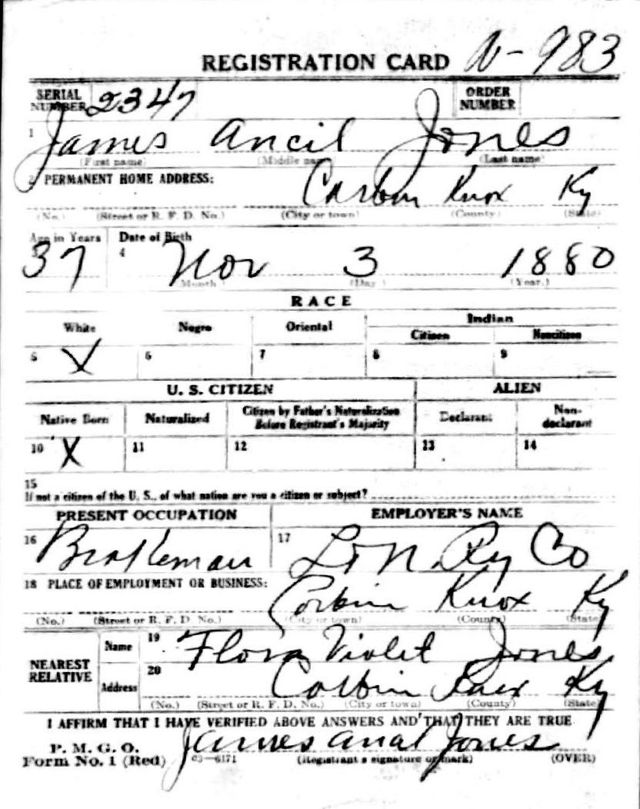 REGISTRATION CARD N-983
SERIAL NUMBER 2347 ORDER NUMBER
1 James Ancil Jones
(First name) (Middle name) (Last name)
2 PERMANENT HOME ADDRESS: Corbin Knox Ky
(No.) (Street or R. F. D. No.) (City or town) (County) (State)
Age in Years Date of Birth
37 4 Nov 3 1880
Month (Day) (Year.)
RACE
White Negro Oriental Indian
Citizen Noncitizen
5 X 6 7 8 9
U. S. CITIZEN ALIEN
Native Born Naturalized Citizen by Father's Naturalization Before Registrant's Majority Declarant Non-declarant
10 X 11 12 13 14
15
If not a citizen of the U. S., of what nation are you a citizen or subject?
PRESENT OCCUPATION EMPLOYER'S NAME
16 Brakeman 17 L & N. Ry Co
18 PLACE OF EMPLOYMENT OR BUSINESS: Corbin Knox Ky
(No.) (Street or R. F. D No.) (City or town) (County) (State)
NEAREST RELATIVE Name 19 Flora Violet Jones
Address 20 Corbin Knox Ky
(No.) (Street or R. F. D. No.) (City or town) (County) (State)
I AFFIRM THAT I HAVE VERIFIED ABOVE ANSWERS AND THAT THEY ARE TRUE
P. M. G. O.
Form No. 1 (Red) 03-6171 James Ancil Jones
(Registrant's signature or mark) (OVER)